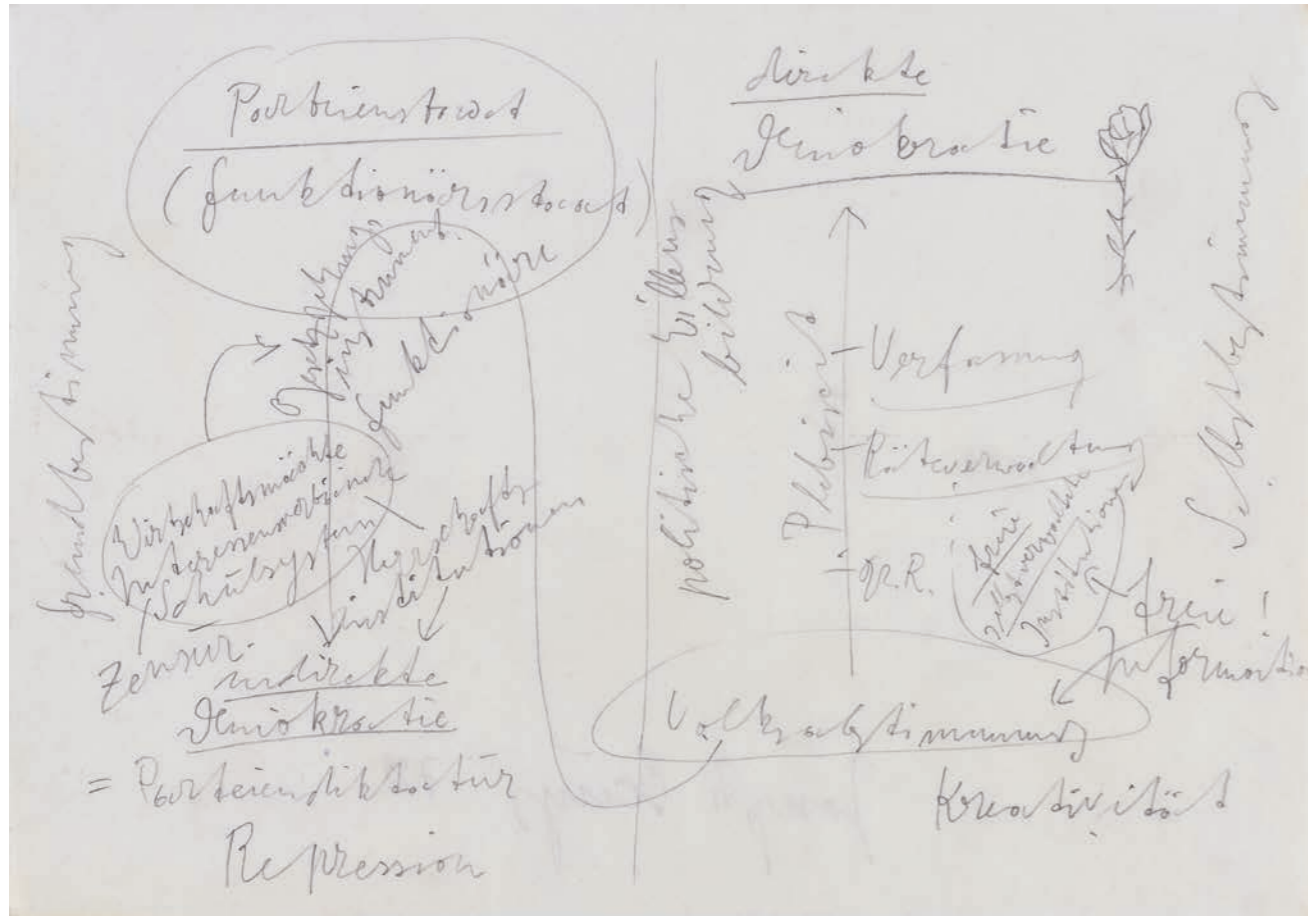 Parteienstaat
(Funktionärsstaat)
Fremdbestimmung
Gesetzgebungs
instrument.
Funktionäre
Wirtschaftsmächte
Interessenverbände
Schulsystem
Herrschafts
institutionen
Zensur.
indirekte
Demokratie
= Parteiendiktatur
Repression
politische Willens
bildung
direkte
Demokratie
Selbstbestimmung
Plebiszit
Verfassung
Räteverwaltung
Gr. R.
freie
selbstverwaltete
Institutionen
freie!
Information
Volksabstimmung
Kreativität